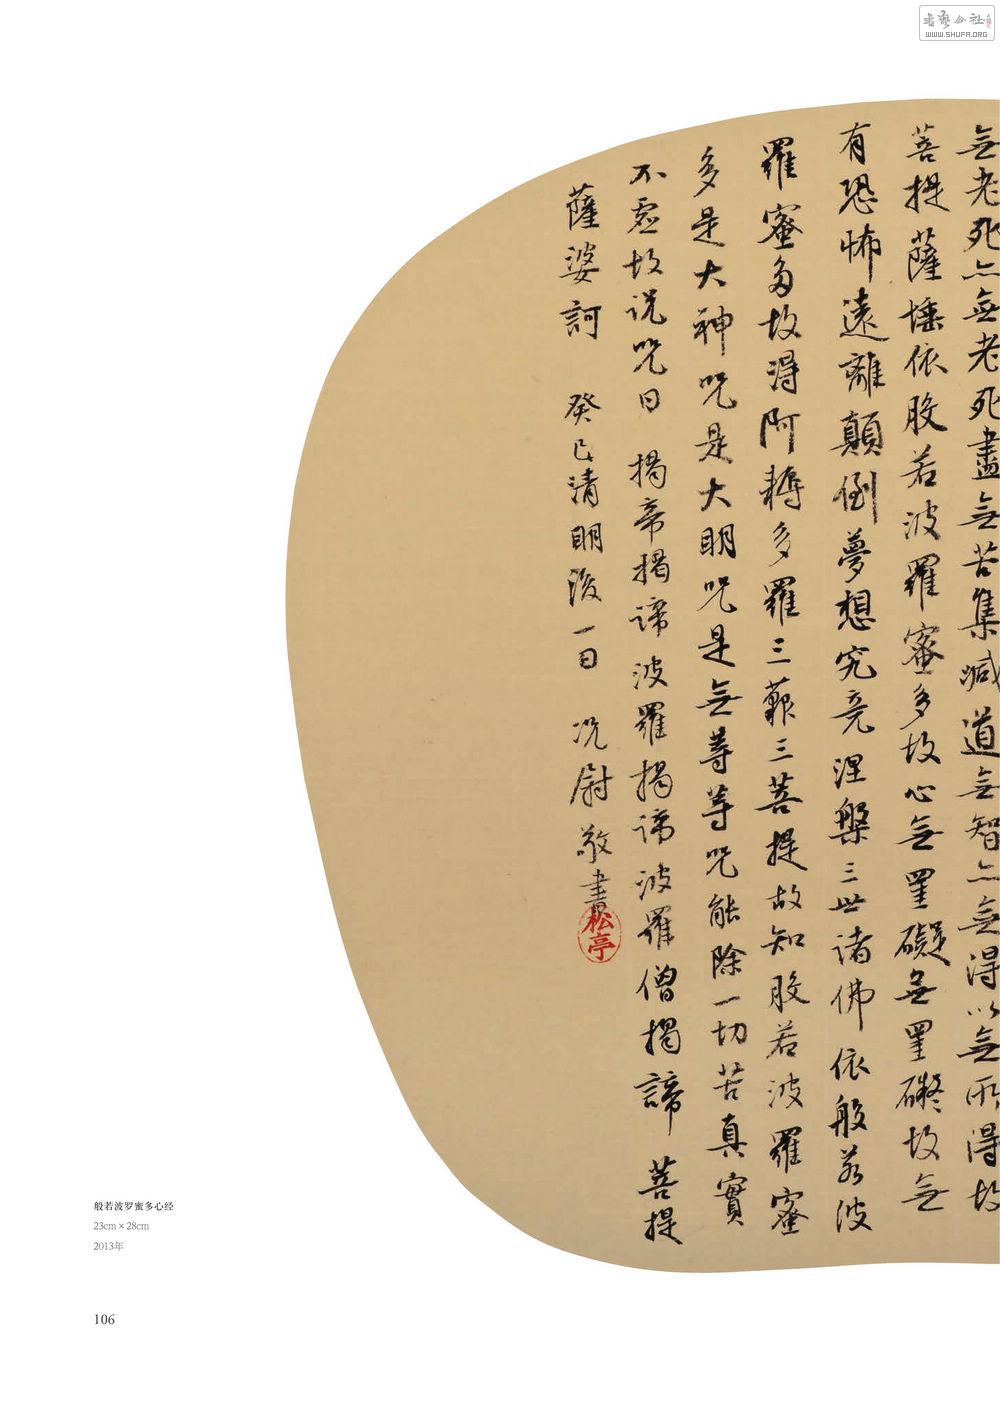 無老死亦無老死盡無苦集滅道無智亦無得以無所得故
菩提薩埵依般若波羅蜜多故心無罣礙無罣礙故無
有恐怖遠離顛倒夢想究竟涅槃三世諸佛依般若波
羅蜜多故得阿耨多羅三藐三菩提故知般若波羅蜜
多是大神咒是大明咒是無等等咒能除一切苦真實
不虛故说咒曰 揭帝揭諦 波羅揭諦 波羅僧揭諦 菩提
薩婆訶 癸巳清明後一日 况尉敬書
松亭
般若波罗蜜多心经
23cm × 28cm
2013年
106
WWW.SHUFA.ORG